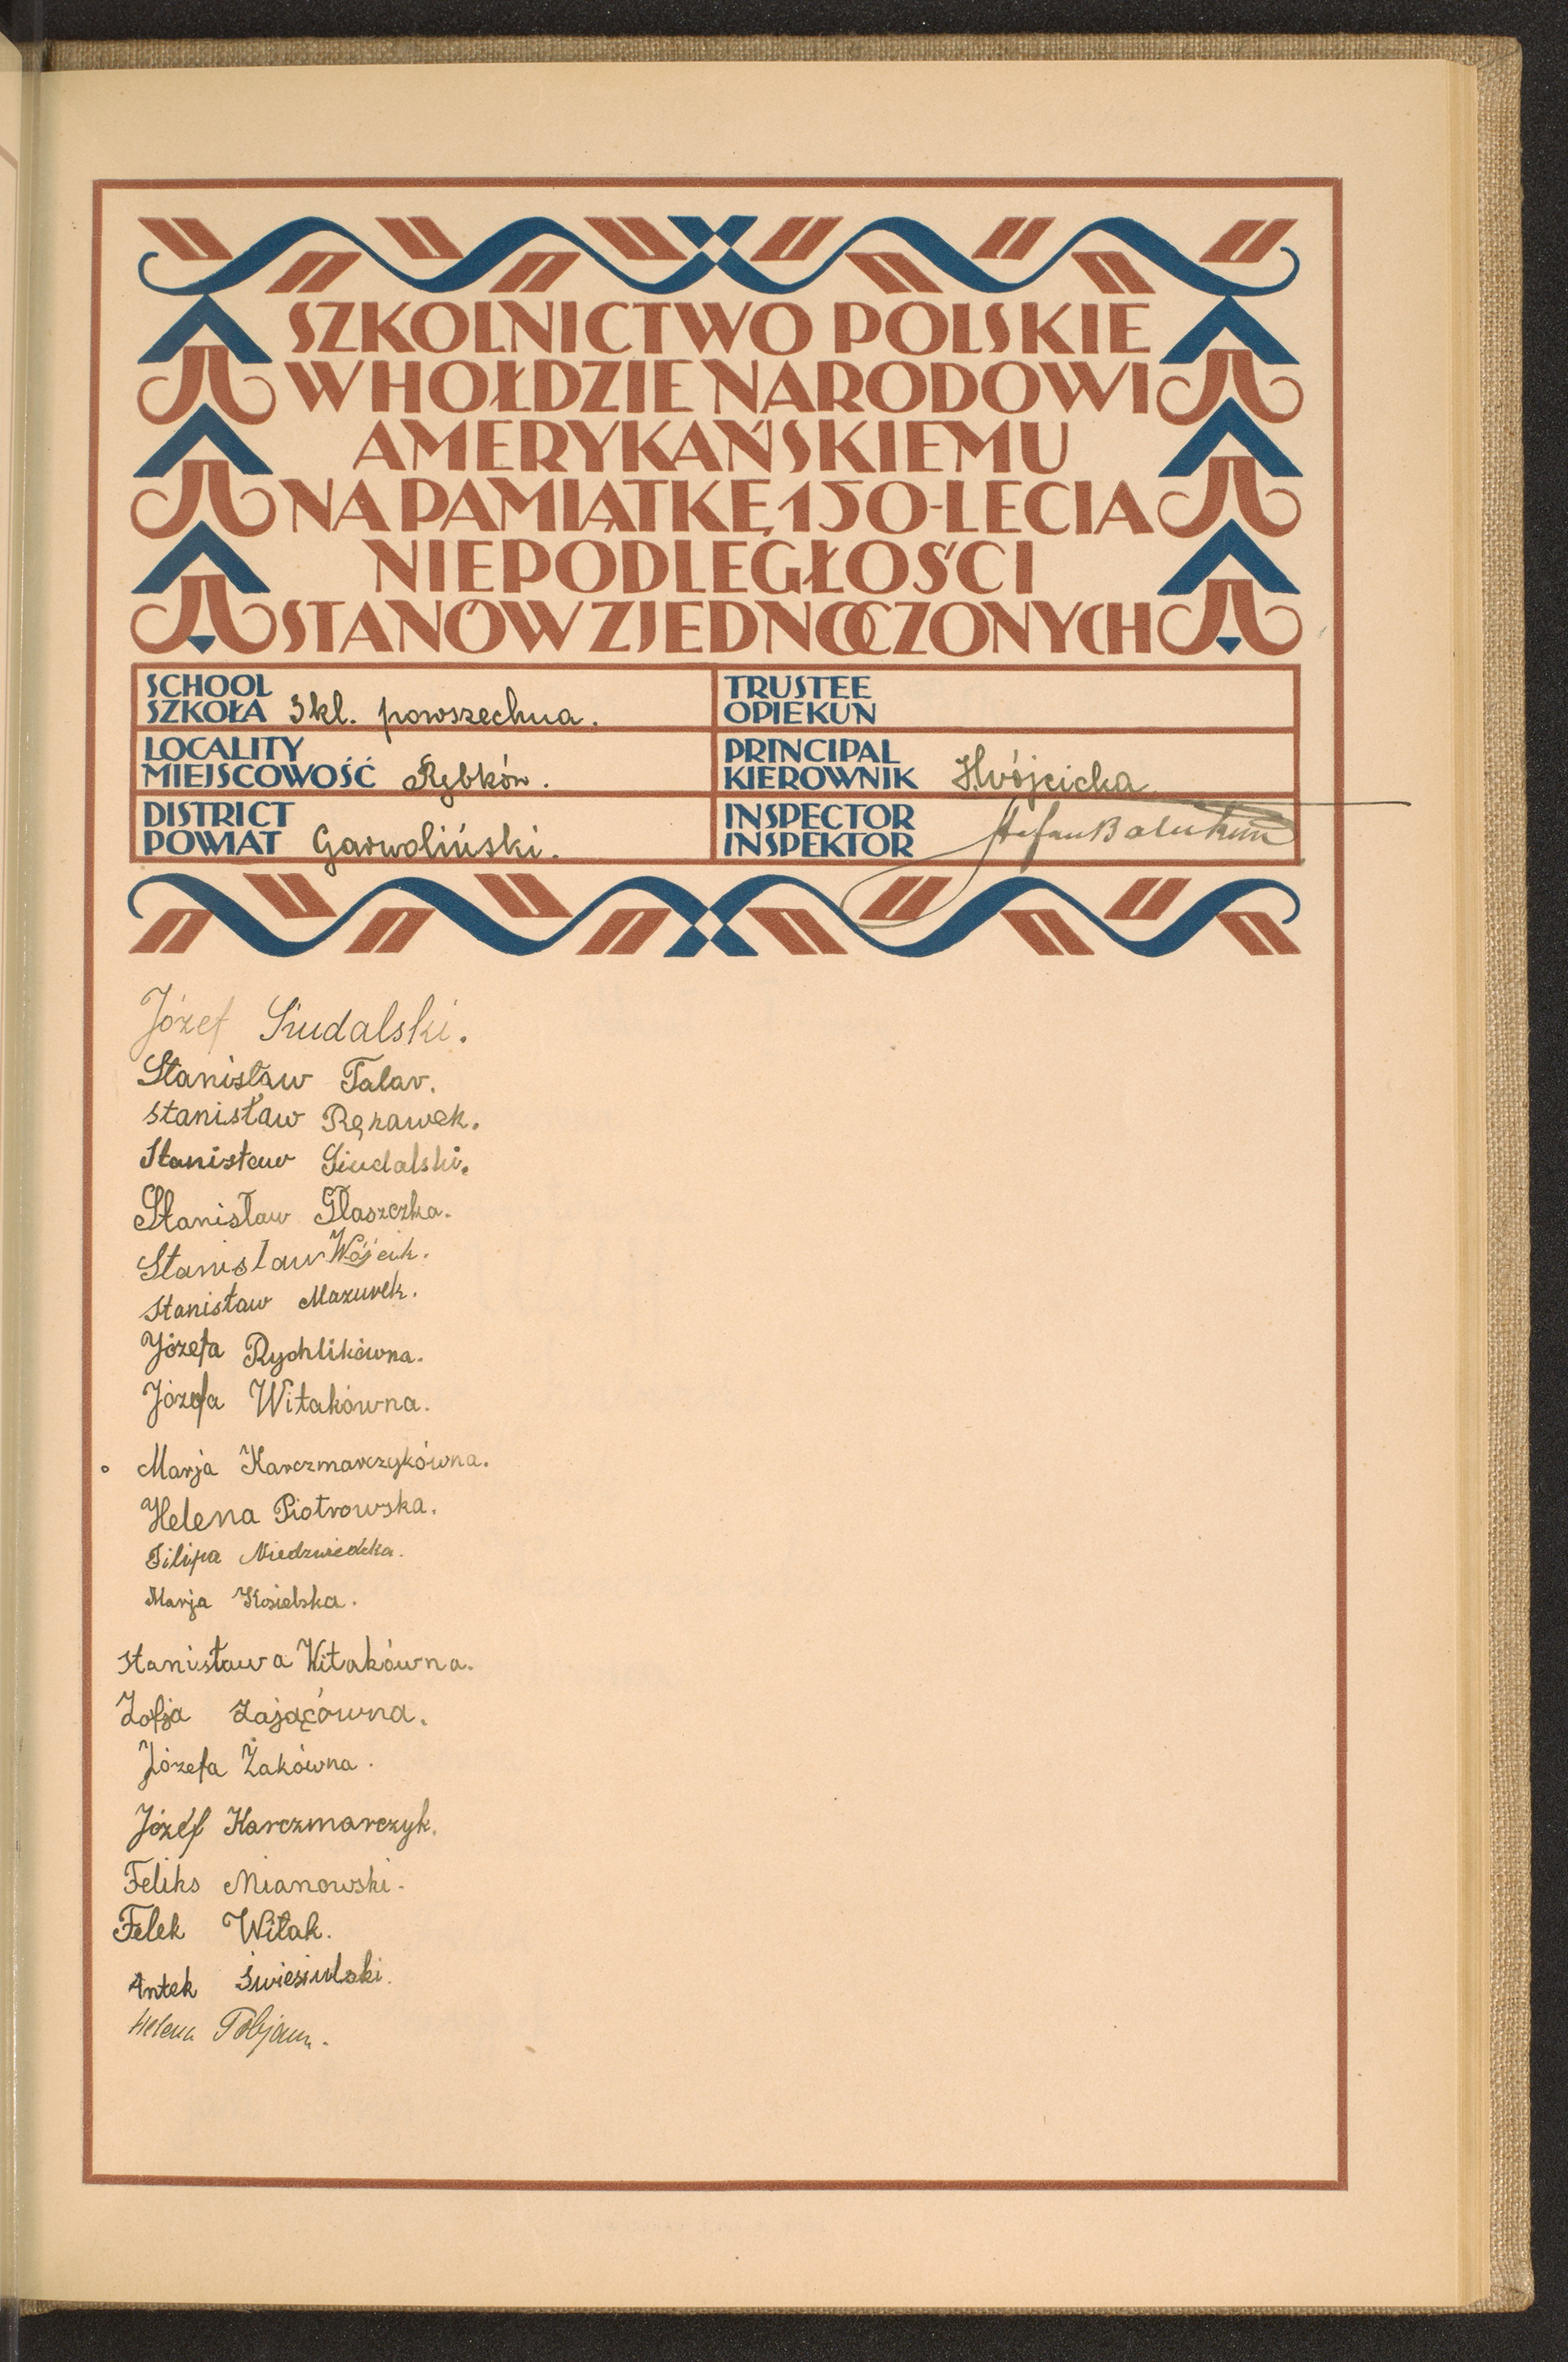 SZKOLNICTWO POLSKIE
W HOŁDZIE NARODOWI
AMERYKAŃSKIEMU
NA PAMIĄTKĘ 150-LECIA
NIEPODLEGŁOŚCI
STANÓW ZJEDNOCZONYCH
SCHOOL
SZKOŁA 3 kl. powszechna.
TRUSTEE
OPIEKUN
LOCALITY
MIEJSCOWOŚĆ Rębków.
PRINCIPAL
KIEROWNIK HWójcicka
DISTRICT
POWIAT Garwoliński.
INSPECTOR
INSPEKTOR Stefan
Józef Siudalski.
Stanisław Talar.
Stanisław Rękawek.
Stanisław Siudalski.
Stanisław Głaszczka.
Stanislaw Wójcik.
Stanisław Mazurek.
Józefa Rychlikówna.
Józefa Witakówna.
Marja Karczmarczykówna.
Helena Piotrowska.
Filipa Niedzwiedzka.
Marja Kosielska.
Stanisława Witakówna.
Zofja Zającówna.
Józefa Żakówna.
Józef Karczmarczyk.
Feliks Mianowski.
Felek Witak.
Antek
Helena